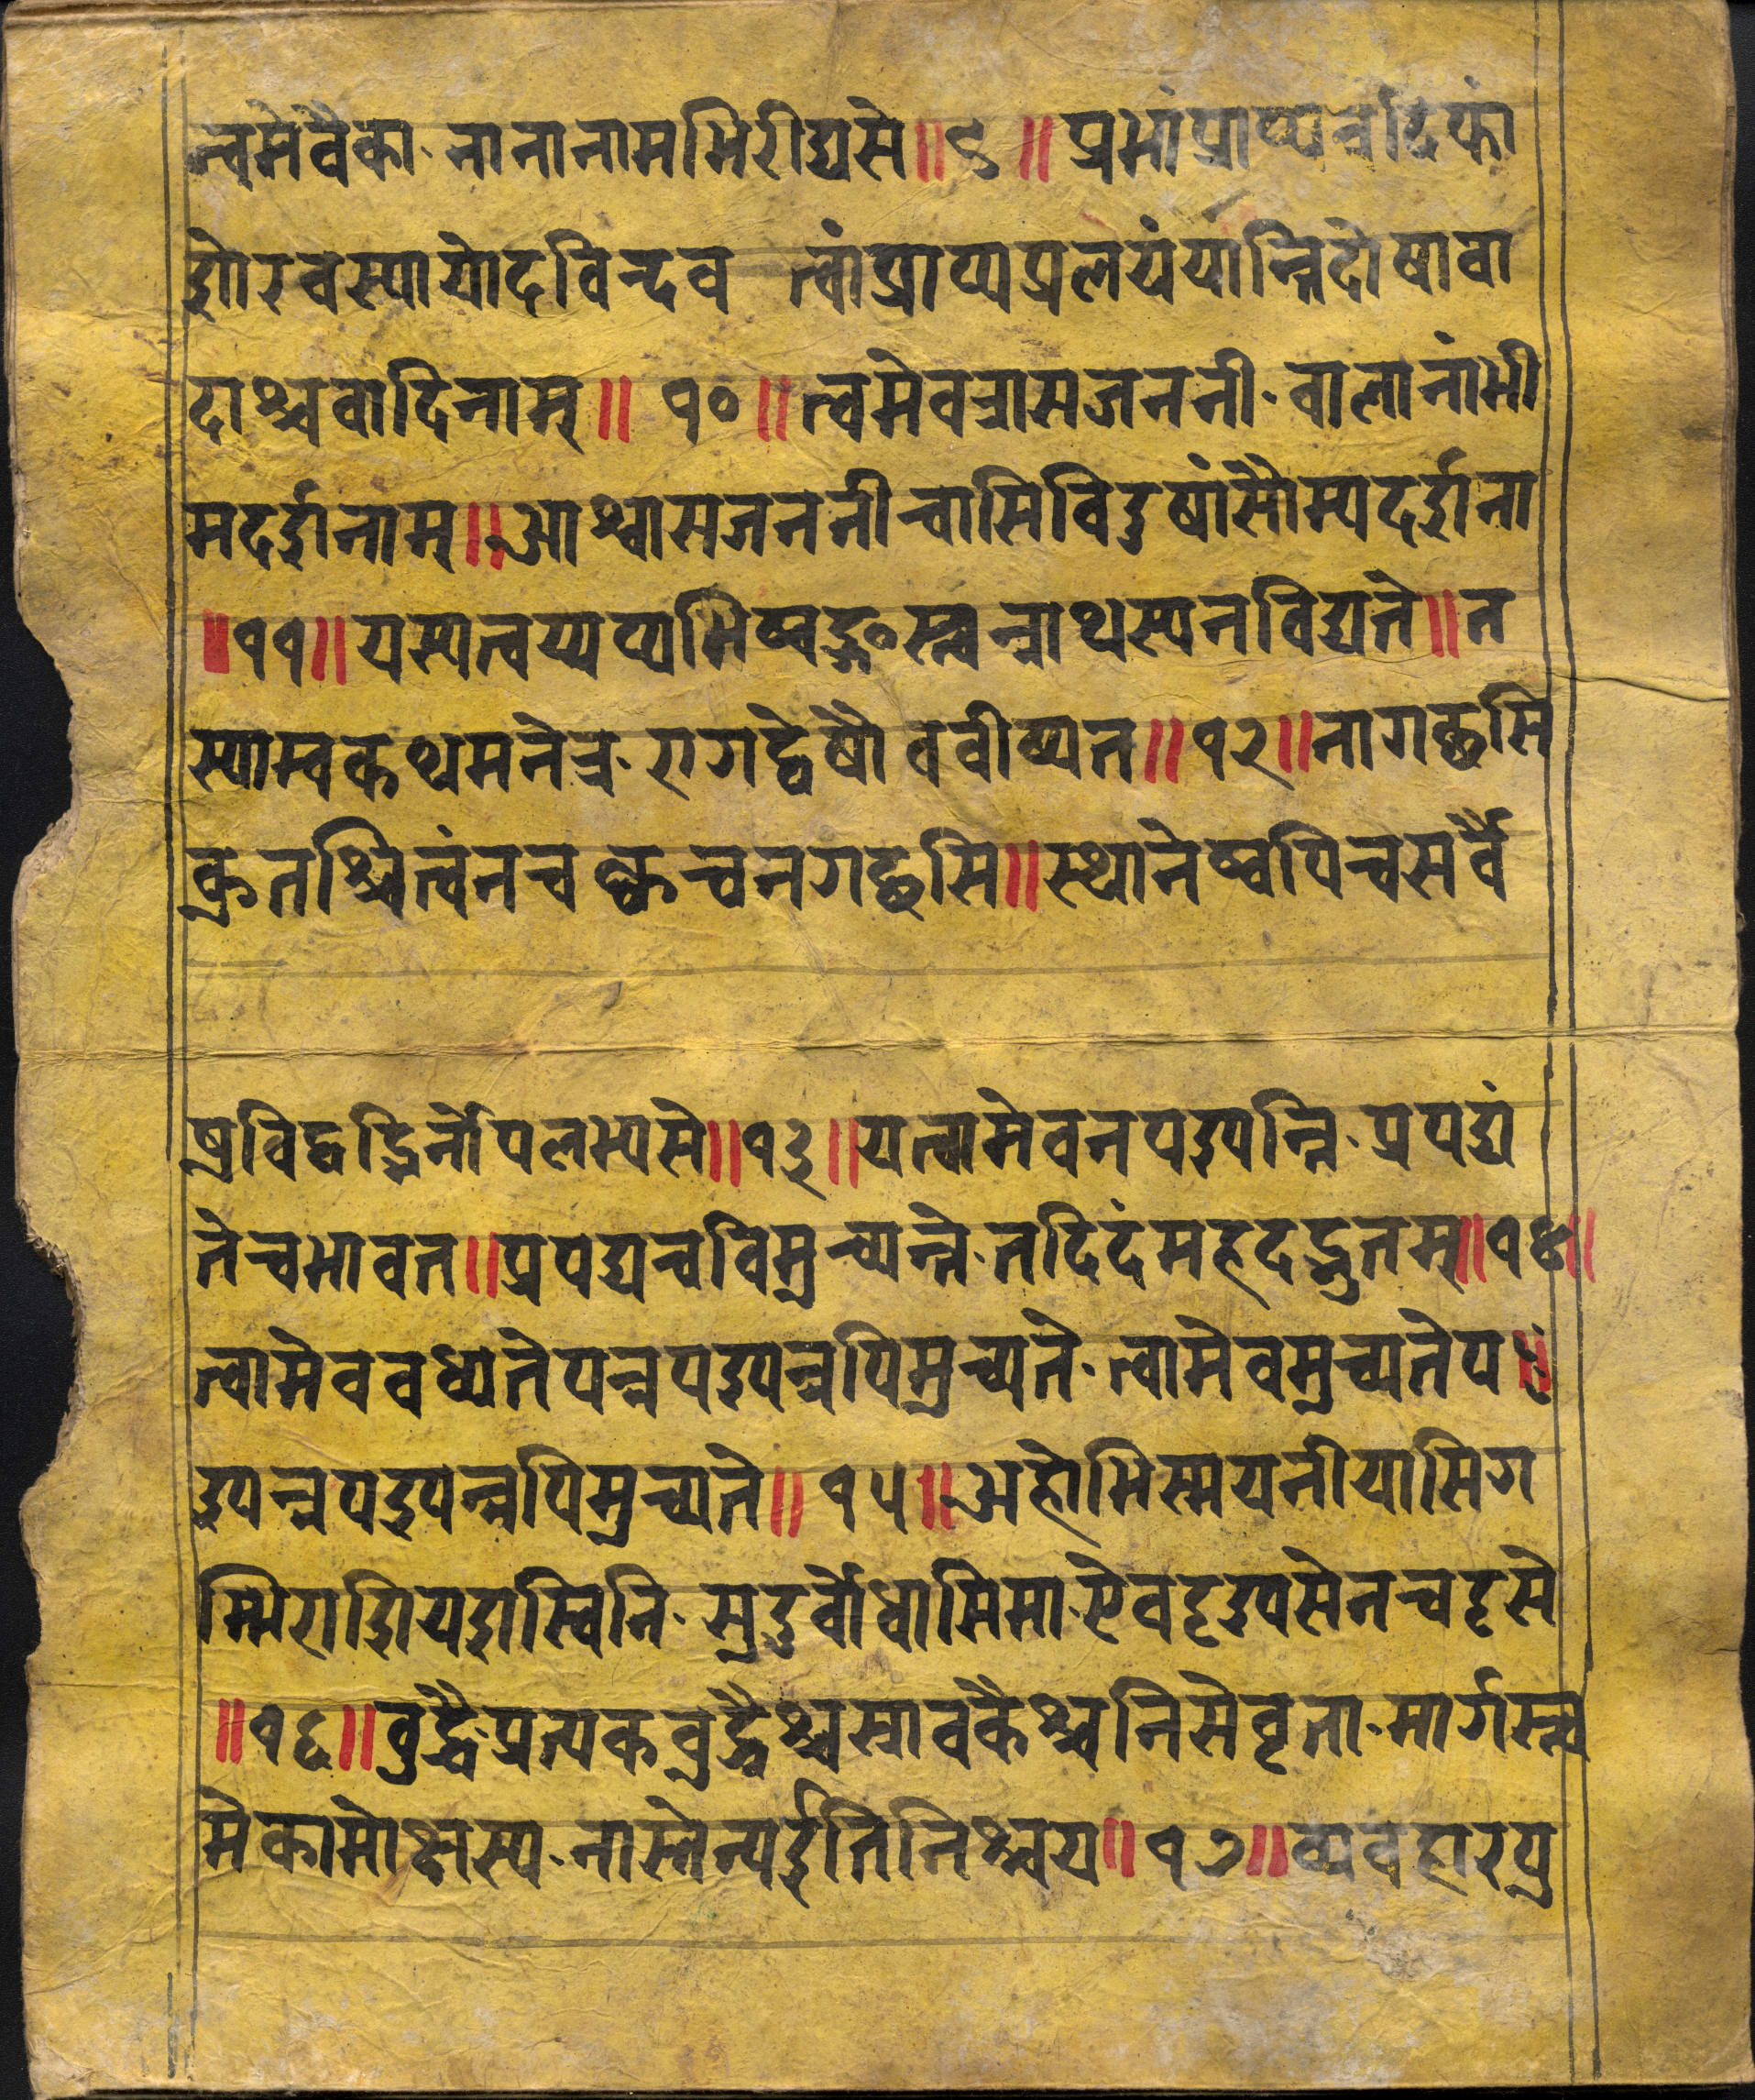 त्वमेवैका·नानानामभिरीद्यसे॥९॥प्रभांप्राप्यवदिप्तां
शोरवस्यायोदविन्दव त्वांप्राप्यप्रलयंयान्तिदोषावा
दाश्चवादिनाम्॥१०॥त्वमेवत्रासजननी·वालानांभी
मदर्शनाम्॥आश्वासजननीचासिविदुषांसौम्यदर्शना
॥११॥यस्यत्वय्यप्यभिष्वङ्गस्त्वन्नाथस्यनविद्यते॥त
स्याम्वकथमनेत्र·रागद्वेषौववीष्यत॥१२॥नागछसि
क्रुतश्चित्वंनचक्वचनगछसि॥स्थानेष्वपिचसर्वै
षुविद्वद्भिर्नोपलभ्यसे॥१३॥यत्वामेवनपश्यन्ति·प्रपद्यं
तेचभावत॥प्रपद्यचविमुच्यन्ते·तदिदंमहदद्भुतम्॥१४॥
त्वामेववध्यतेपन्नपश्यन्नपिमुच्यते·त्वामेवमुच्यतेप॥
श्यन्नपश्यन्नपिमुच्यते॥१५॥अहोभिस्मयनीयासिग
म्भिराशियशस्विनि·सुदुर्वोधासिमा·ऐवदृश्यसेनचदृसे
॥१६॥वुद्धै·प्रत्यकवुद्धैश्चस्रावकैश्चनिसेवृता·मार्गस्त्व
मेकामोक्षस्य·नास्तेन्यर्इतिनिश्चय॥१७॥व्यवहारपु